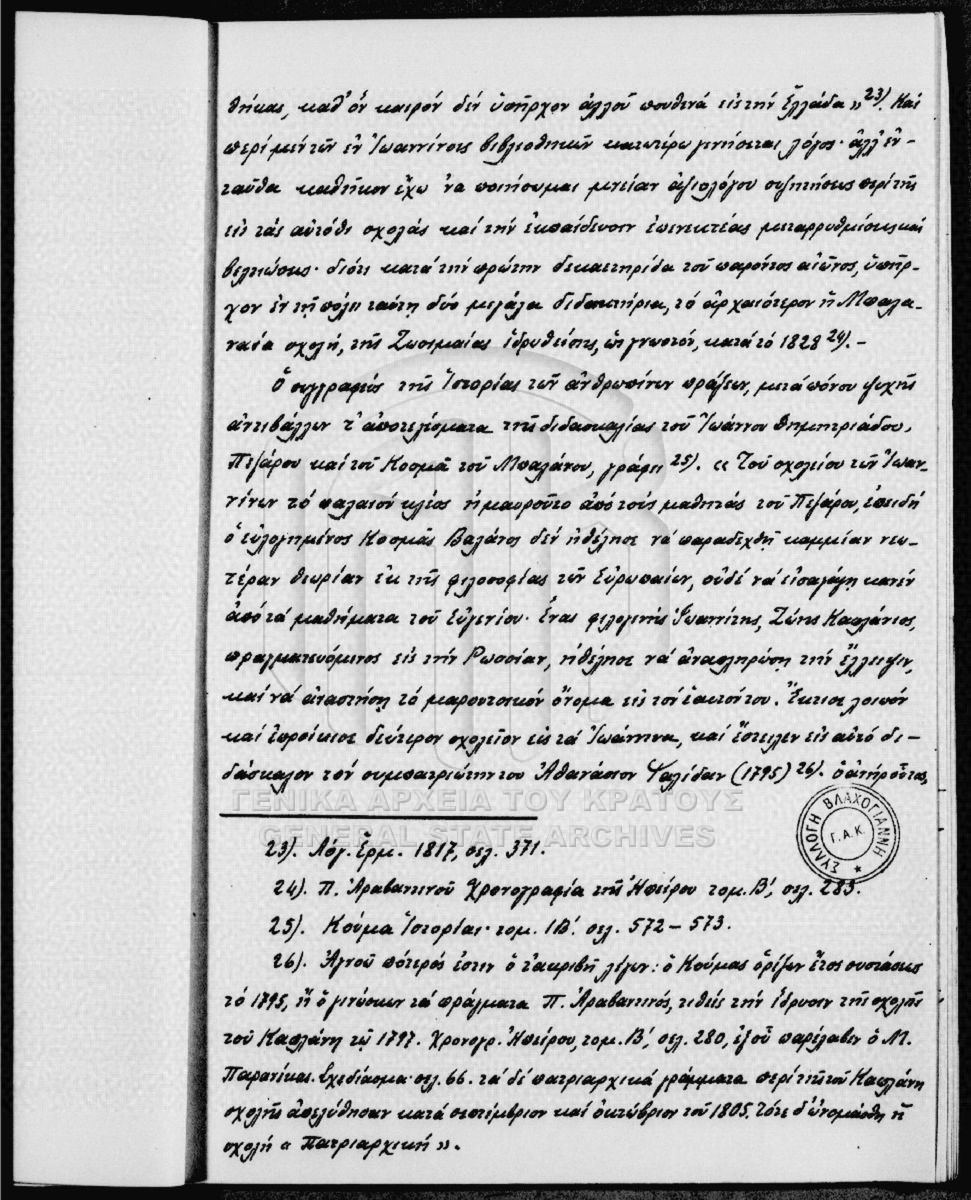 θήκας, καθ' ὃν καιρόν δέν ὑπῆρχον ἀλλοῦ πουθενά εἰς τήν Ἑλλάδα» 23). Καί
περί μέν τῶν ἐν Ἰωαννίνοις βιβλιοθηκῶν κατωτέρω γενήσεται λόγος· ἀλλ' ἐν-
ταῦθα καθῆκον ἔχω νά ποιήσωμαι μνείαν ἀξιολόγου συζητήσεως περί τῆς
εἰς τάς αὐτόθι σχολάς καί τήν ἐκπαίδευσιν ἐπενεκτέας μεταρρυθμίσεως καί
βελτιώσεως· διότι κατά τήν πρώτην δεκαετηρίδα τοῦ παρόντος αἰῶνος, ὑπῆρ-
χον ἐν τῇ πόλει ταύτῃ δύο μεγάλα διδακτήρια, τό ἀρχαιότερον ἡ Μπαλα-
ναία σχολή, τῆς Ζωσιμαίας ἱδρυθείσης, ὡς γνωστόν, κατά τό 1828 24). –
Ὁ συγγραφεύς τῆς Ἱστορίας τῶν ἀνθρωπίνων πράξεων, μετά πόνου ψυχῆς
ἀντιβάλλων τ' ἀποτελέσματα τῆς διδασκαλίας τοῦ Ἰωάννου Δημητριάδου,
Πεζάρου καί τοῦ Κοσμᾶ τοῦ Μπαλάνου, γράφει 25). «Τοῦ σχολείου τῶν Ἰωαν-
νίνων τό παλαιόν κλέος ἠμαυροῦτο ἀπό τούς μαθητάς τοῦ Πεζάρου, ἐπειδή
ὁ εὐλογημένος Κοσμᾶς Βαλάνος δέν ἠθέλησε νά παραδεχθῇ καμμίαν νεω-
τέραν θεωρίαν ἐκ τῆς φιλοσοφίας τῶν Εὐρωπαίων, οὐδέ νά εἰσαγάγῃ κανέν
ἀπό τά μαθήματα τοῦ Εὐγενίου. Ἕνας φιλογενής Ἰωαννίτης, Ζώης Καπλάνιος,
πραγματευόμενος εἰς τήν Ρωσσίαν, ἠθέλησε νά ἀναπληρώσῃ τήν ἔλλειψιν,
καί νά ἀναστήσῃ τό μαρουτσικόν ὄνομα εἰς τόν ἑαυτόν του. Ἔκτισε λοιπόν
καί ἐπροίκισε δεύτερον σχολεῖον εἰς τά Ἰωάννινα, καί ἔστειλεν εἰς αὐτό δι-
δάσκαλον τόν συμπατριώτην του Ἀθανάσιον Ψαλίδαν (1795) 26). ὁ ἀνήρ οὗτος,
ΓΕΝΙΚΑ ΑΡΧΕΙΑ ΤΟΥ ΚΡΑΤΟΥΣ
GENERAL STATE ARCHIVES
ΣΥΛΛΟΓΗ ΒΛΑΧΟΓΙΑΝΝΗ
Γ.Α.Κ.
23). Λόγ. Ἑρμ. 1817, σελ. 371.
24). Π. Ἀραβαντινοῦ Χρονογραφία τῆς Ἠπείρου τομ. Β', σελ. 283.
25). Κούμα Ἱστορίαι· τομ. ΙΒ'. σελ. 572 – 573.
26). Ἀγνοῶ πότερός ἐστιν ὁ τἀκριβῆ λέγων: ὁ Κούμας ὁρίζων ἔτος συστάσεως
τό 1795, ἤ ὁ γινώσκων τά πράγματα Π. Ἀραβαντινός, τιθείς τήν ἵδρυσιν τῆς σχολῆς
τοῦ Καπλάνη τῷ 1797. Χρονογρ. Ἠπείρου, τομ. Β', σελ. 280, ἐξ οὗ παρέλαβεν ὁ Μ.
Παρανίκας. Σχεδίασμα· σελ. 66. τά δέ πατριαρχικά γράμματα περί τῆς τοῦ Καπλάνη
σχολῆς ἀπελύθησαν κατά σεπτέμβριον καί ὀκτώβριον τοῦ 1805. Τότε δ' ὠνομάσθη ἡ
σχολή «Πατριαρχική».